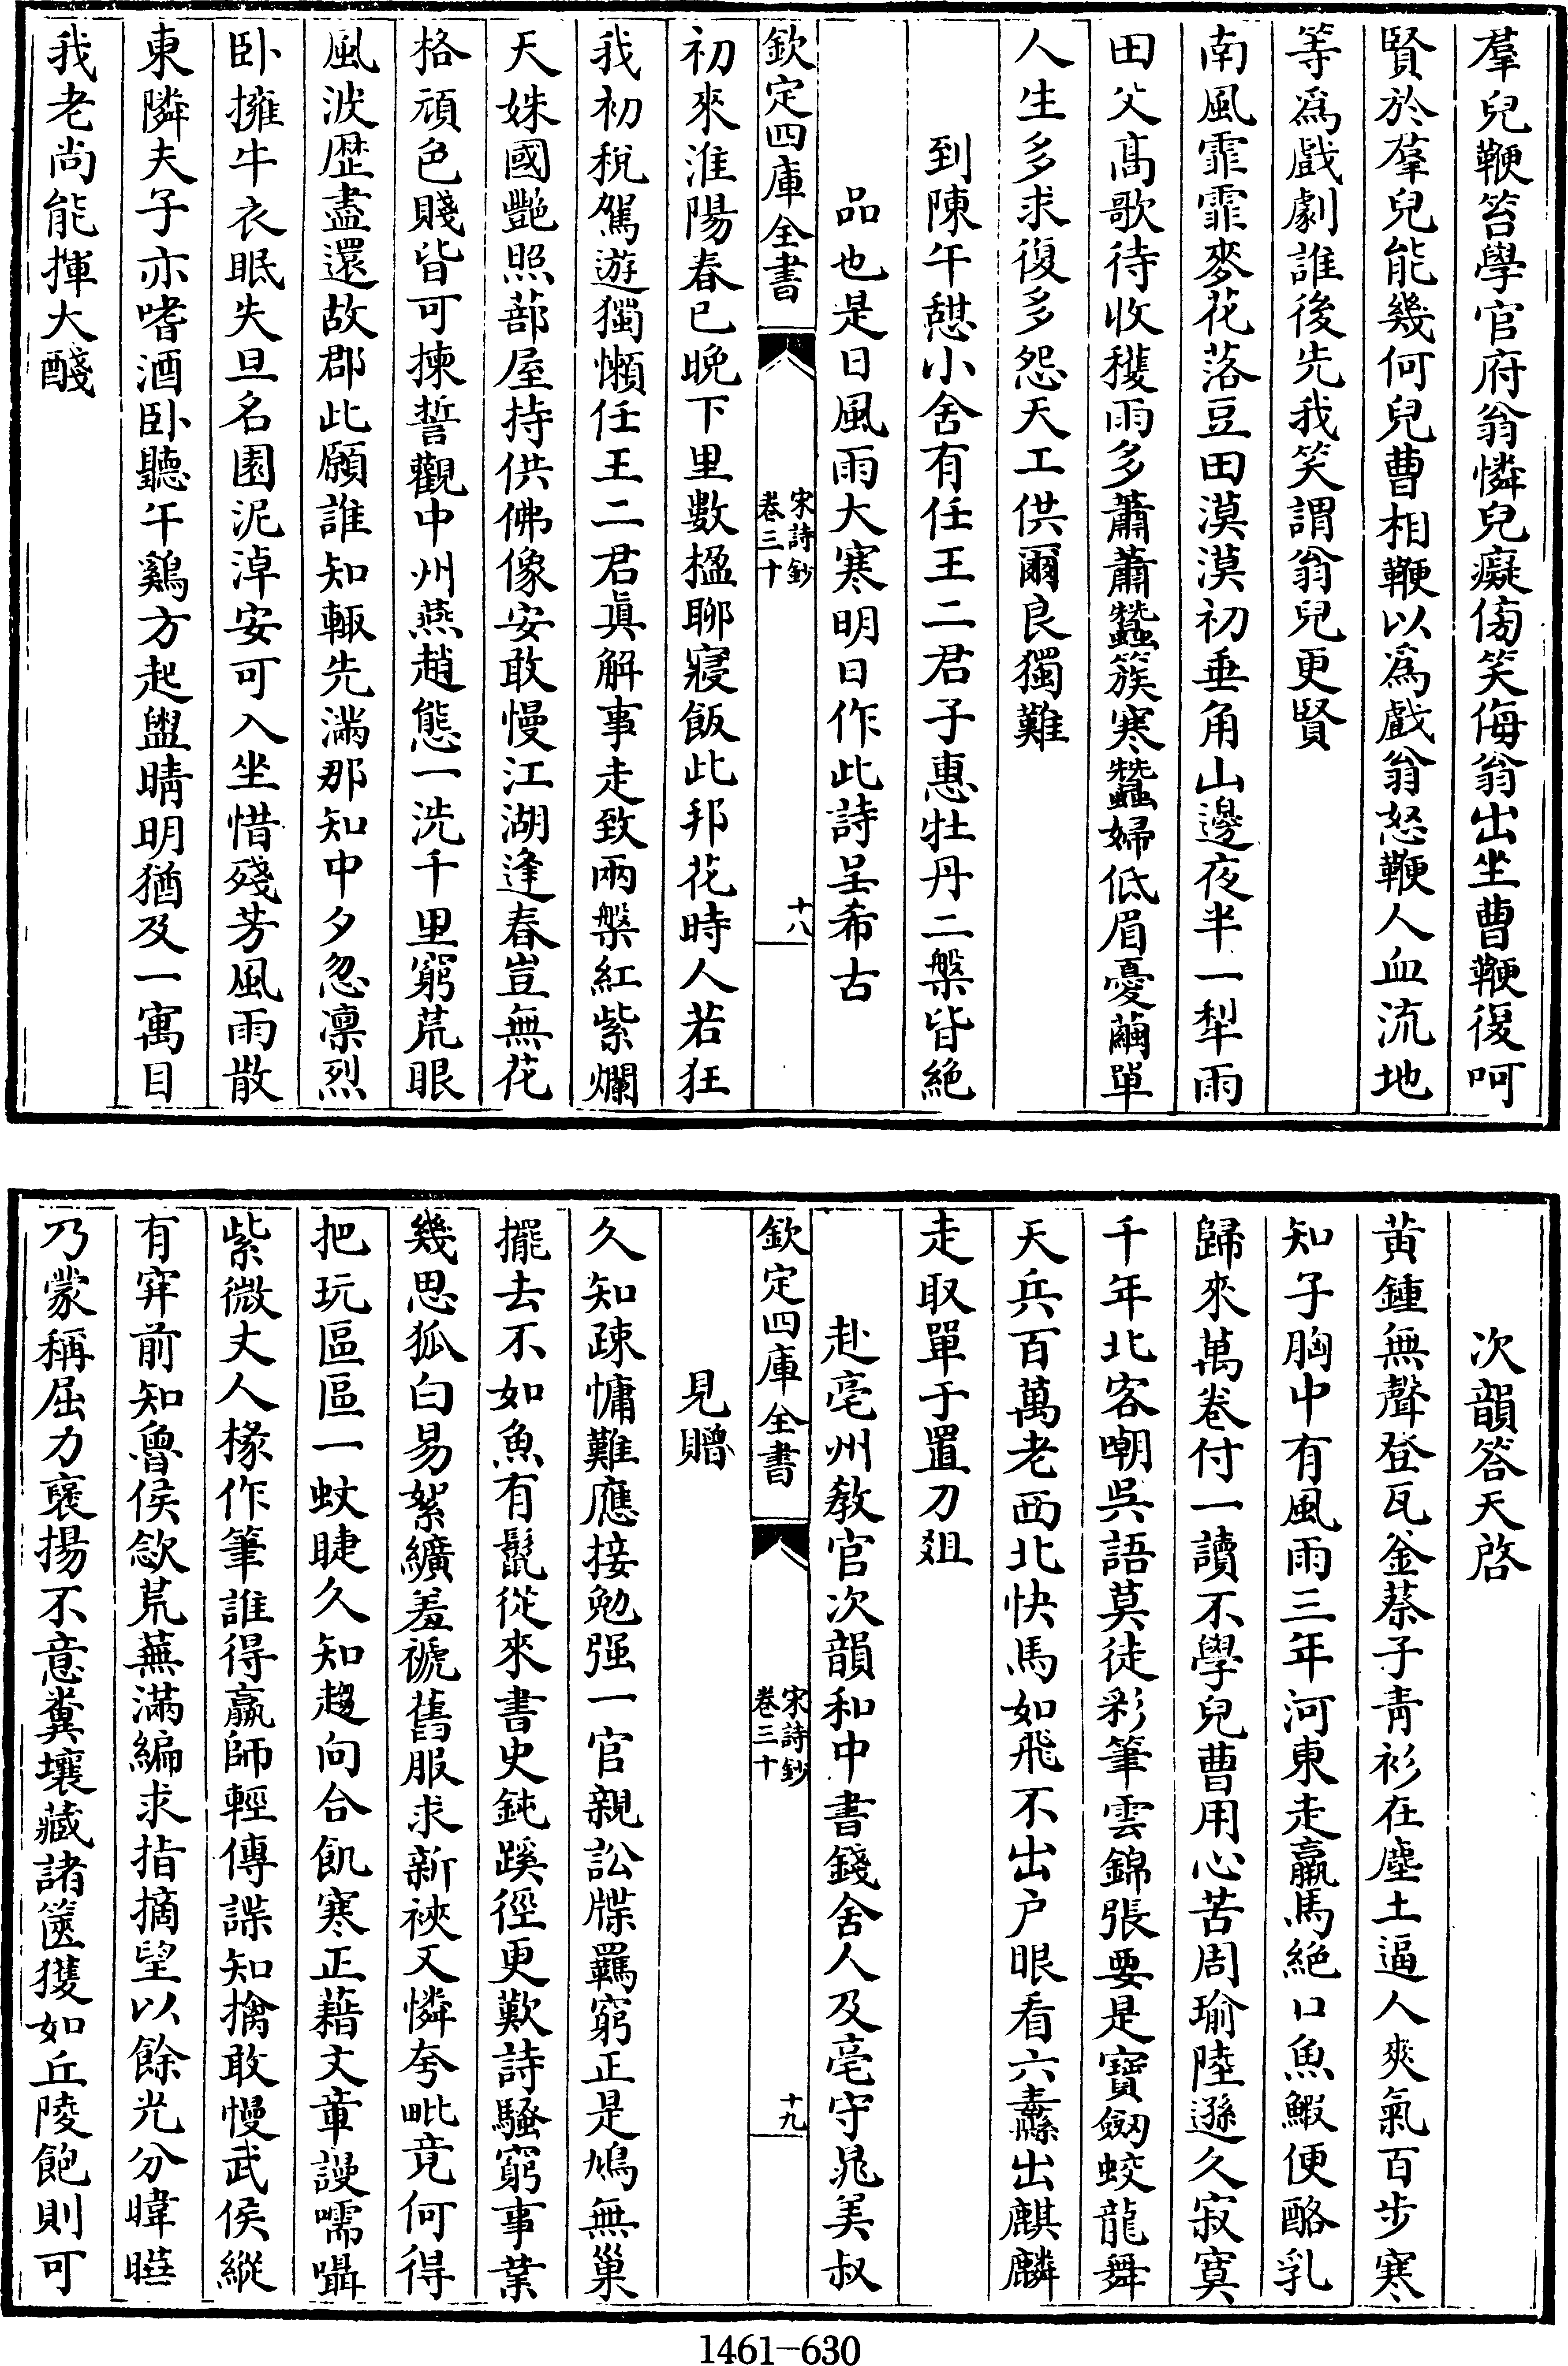 羣兒鞭笞學官府翁憐兒癡傍笑侮翁出坐曹鞭復呵
賢於羣兒能幾何兒曹相鞭以為戲翁怒鞭人血流地
等為戲劇誰後先我笑謂翁兒更賢
南風霏霏麥花落豆田漠漠初垂角山邊夜半一犁雨
田父高歌待收穫雨多蕭蕭蠶簇寒蠶婦低眉憂繭單
人生多求復多怨天工供爾良獨難
到陳午憇小舍有任王二君子惠牡丹二槃皆絕
品也是日風雨大寒明日作此詩呈希古
欽定四庫全書
宋詩鈔
卷三十
十八
初來淮陽春已晚下里數楹聊寢飯此邦花時人若狂
我初稅駕遊獨懶任王二君真解事走致兩槃紅紫爛
天姝國艷照蔀屋持供佛像安敢慢江湖逢春豈無花
格頑色賤皆可揀誓觀中州燕趙態一洗千里窮荒眼
風波歷盡還故郡此願誰知輙先滿那知中夕忽凛烈
卧擁牛衣眠失旦名園泥淖安可入坐惜殘芳風雨散
東隣夫子亦嗜酒卧聽午鷄方起盥晴明猶及一寓目
我老尚能揮大醆
次韻答天啓
黃鍾無聲登瓦釡蔡子青衫在塵土逼人爽氣百步寒
知子胸中有風雨三年河東走羸馬絕口魚鰕便酪乳
歸來萬卷付一讀不學兒曹用心苦周瑜陸遜久寂寞
千年北客嘲吳語莫徒彩筆雲錦張要是寶劒蛟龍舞
天兵百萬老西北快馬如飛不出户眼看六纛出麒麟
走取單于置刀爼
赴亳州教官次韻和中書錢舍人及亳守晁美叔
見贈
欽定四庫全書
宋詩鈔
卷三十
十九
久知疎慵難應接勉强一官親訟牒羈窮正是鳩無巢
擺去不如魚有鬛從來書史鈍蹊徑更歎詩騷窮事業
幾思狐白易絮纊羞褫舊服求新裌又憐夸毗竟何得
把玩區區一蚊睫久知趨向合飢寒正藉文章謾嚅囁
紫微丈人椽作筆誰得羸師輕傳諜知擒敢慢武侯縱
有穽前知魯侯歛荒蕪滿編求指摘望以餘光分暐曄
乃蒙稱屈力襃揚不意糞壤藏諸篋獲如丘陵飽則可
1461-630